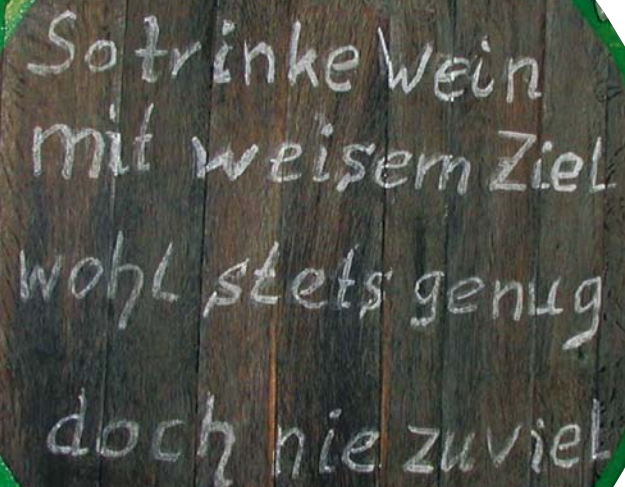 So trinke Wein
mit weisem Ziel
wohl stets genug
doch nie zuviel